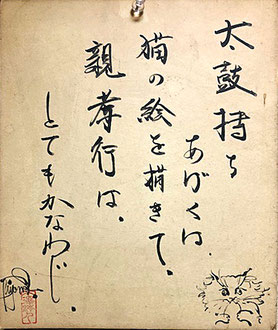 太鼓持ち
あげくは
猫の絵を描きて、
親孝行は、
とてもかなわじ。